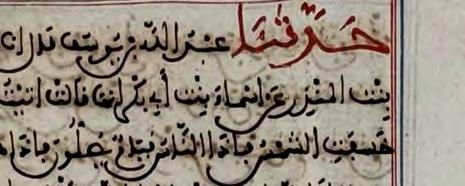 حدثنا عبد الله بن يوسف قال ان
بنت المنذر عن اسماء بنت أبي بكر انها قالت اتيت
خسفت الشمس فإذا الناس قيام يصلون فإذا ه